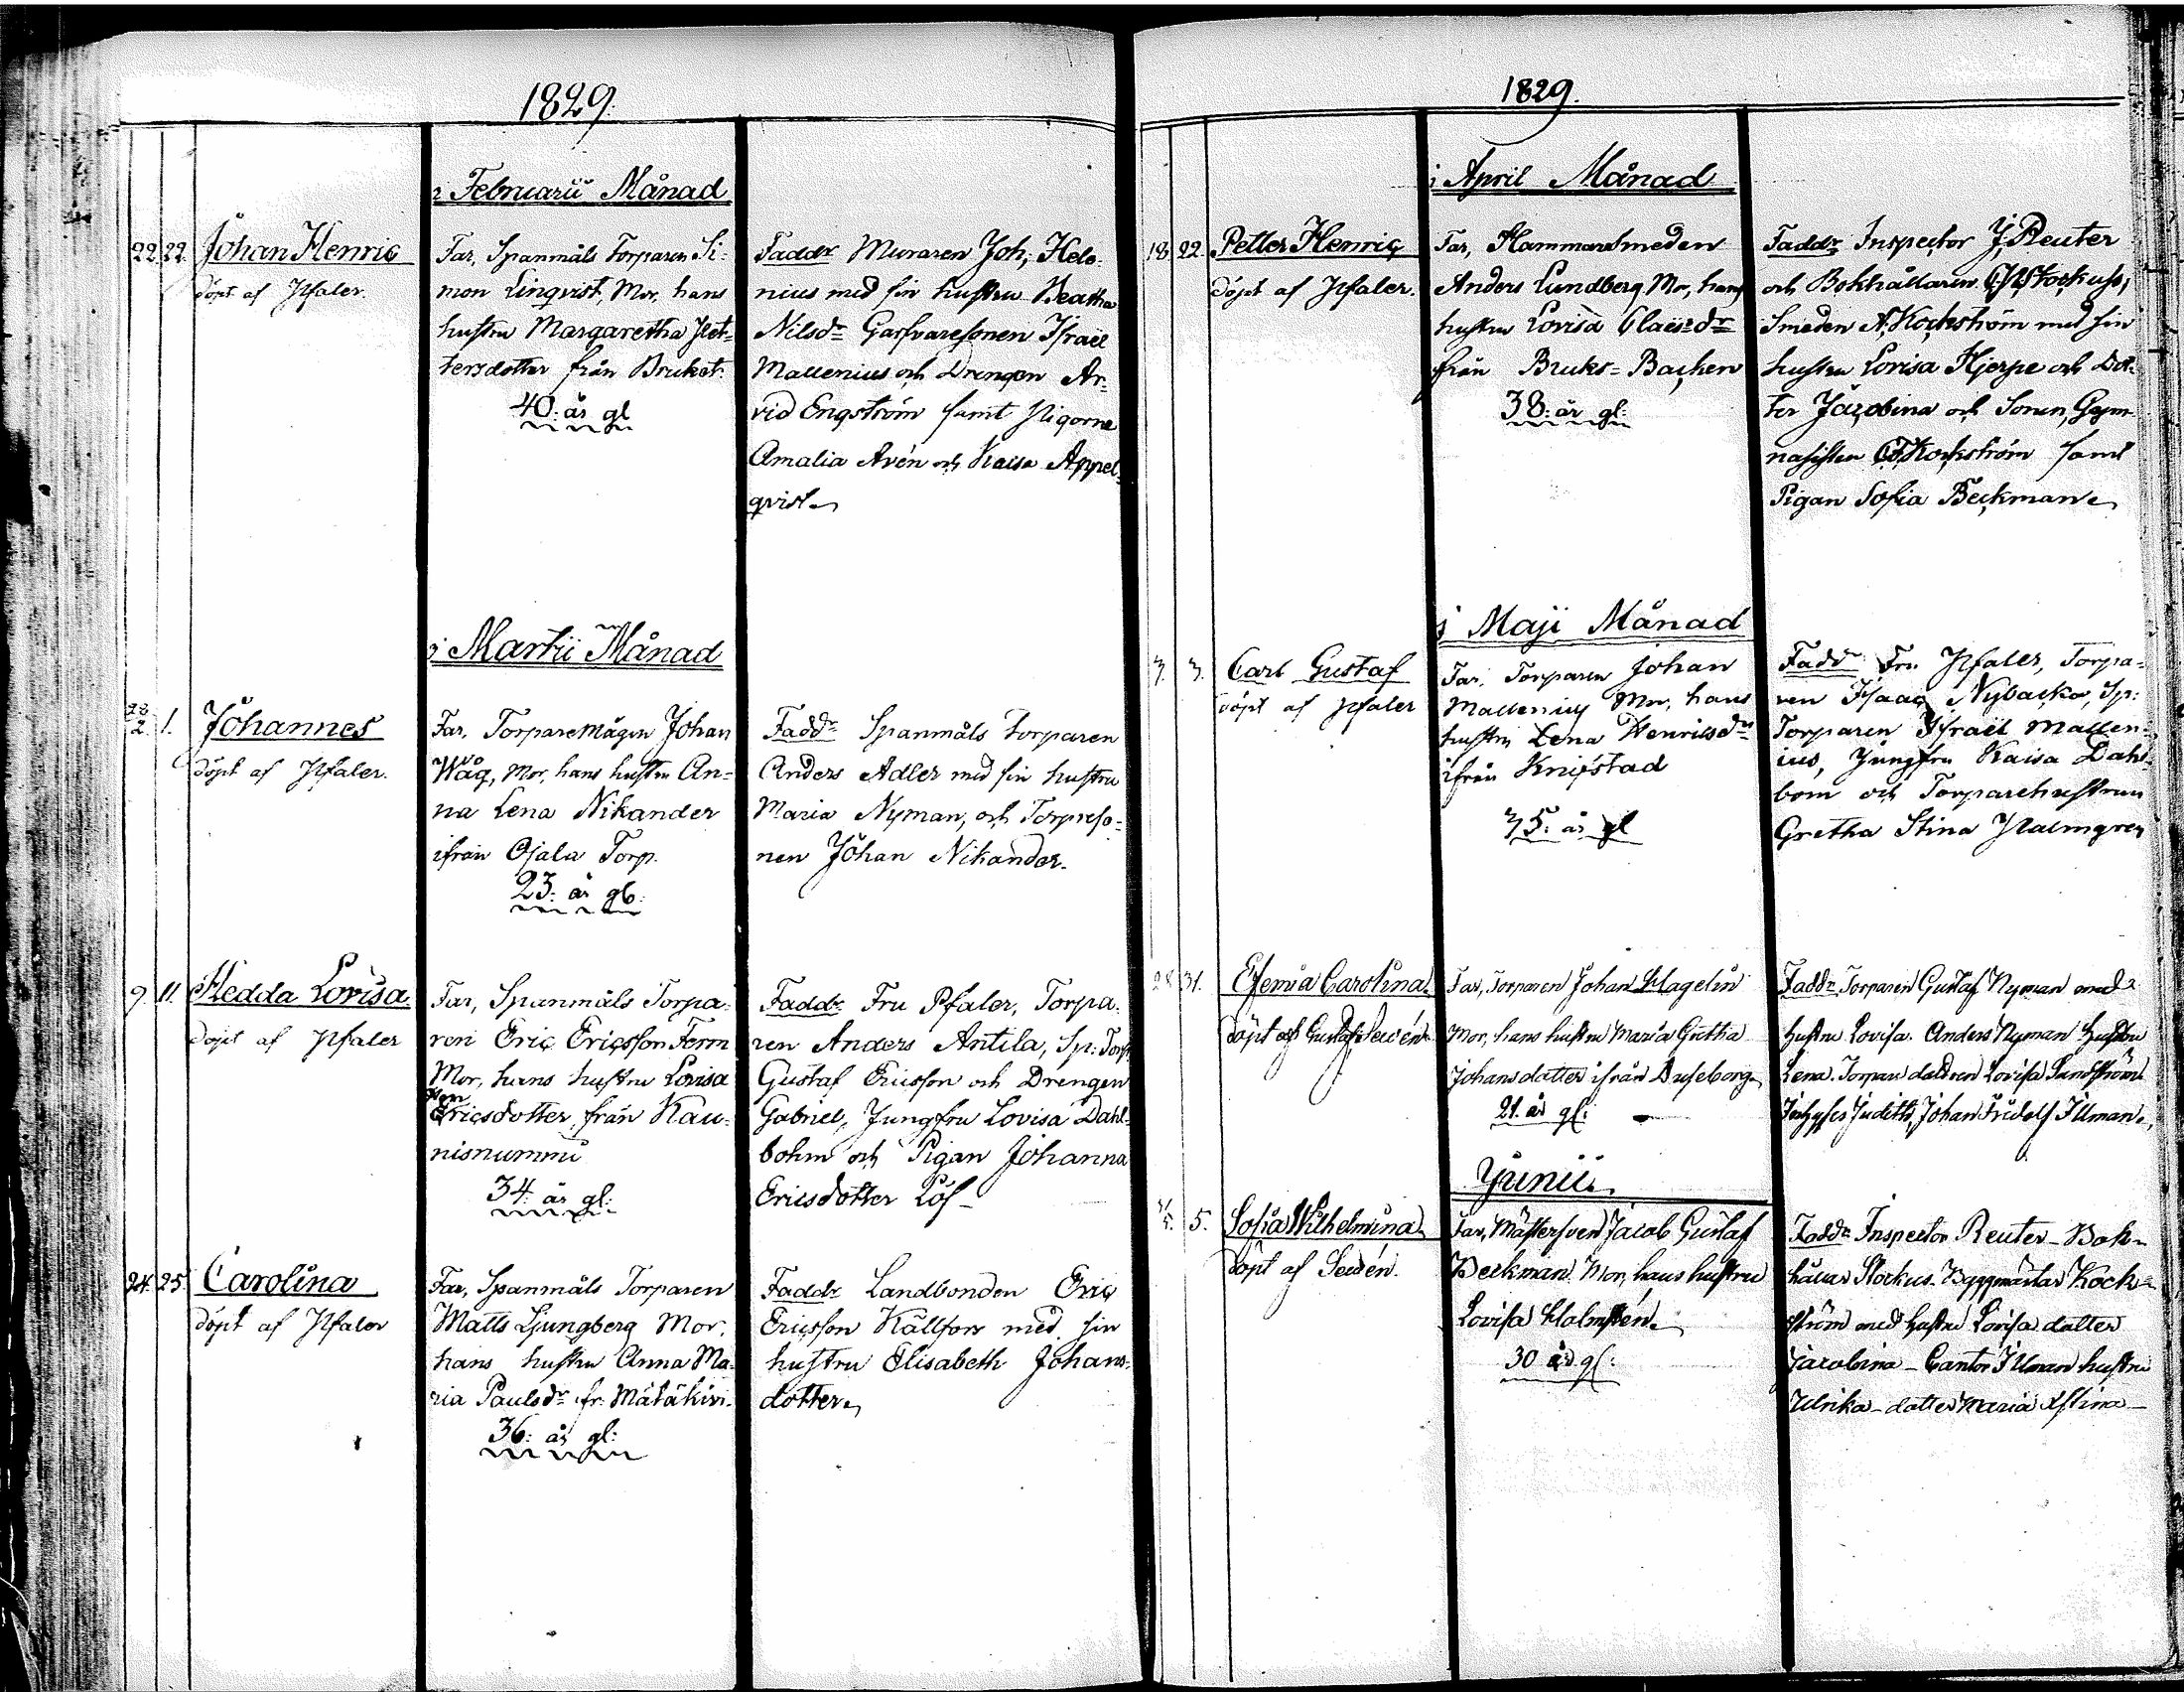 1829.
i Februarii Månad
22. 22. Johan Henric
döpt af Pfaler.
Far, Spanmåls Torparen Si=
mon Linqvist, Mor, hans
hustru Margaretha Pet=
tersdotter från Bruket.
40: år gl
Faddr Muraren Joh; Hele=
nius med sin hustru Beatha
Nilsdr Garfvaresonen Israël
Mallenius och Drengen Ar=
vid Engström samt Pigorne
Amalia Avén och Kaisa Appel=
qvist
i Martii Månad
28/2. 1. Johannes
döpt af Pfaler.
Far, Torparemågen Johan
Wåg, Mor, hans hustru An=
na Lena Nikander
ifrån Ojala Torp.
23: år gl:
Faddr Spanmåls Torparen
Anders Adler med sin hustru
Maria Nyman, och Torpareso=
nen Johan Nikander.
9. 11. Hedda Lovisa
döpt af Pfaler
Far, Spanmåls Torpa=
ren Eric Ericsson Ferm
Mor, hans hustru Lovisa
Ericsdotter, från Kau=
nisnummi
34: år gl:
Faddr Fru Pfaler, Torpa=
ren Anders Antila, Sp: Torp
Gustaf Ericsson och Drengen
Gabriel, Jungfru Lovisa Dahl=
bohm och Pigan Johanna
Ericsdotter Löf
24. 25. Carolina
döpt af Pfaler
Far, Spanmåls Torparen
Matts Ljungberg Mor,
hans hustru Anna Ma=
ria Paulsdr fr: Mätäkivi.
36: år gl:
Faddr Landbonden Eric
Ericsson Källfors med sin
hustru Elisabeth Johans=
dotter
1829.
i April Månad
18. 22. Petter Henric
döpt af Pfaler.
Far, Hammarsmeden
Anders Lundberg Mor, hans
hustru Lovisa Claësdr
från Bruks=Backen
38: år gl:
Faddr Inspector J, Reuter
och Bokhållaren Stockus,
Smeden A, Kockström med sin
hustru Lovisa Hjerpe och Dot=
ter Jacobina och Sonen, Gym=
nasisten Kockström samt
Pigan Sofia Beckman
i Maji Månad
3. 3. Carl Gustaf
döpt af Pfaler
Far, Torparen Johan
Mallenius Mor, hans
hustru Lena Henricsdr
ifrån Knipstad
35: år gl
Faddr Fru Pfaler, Torpa=
ren Isaac Nybacka, Sp:
Torparen Israël Mallen=
ius, Jungfru Kaisa Dahl=
bom och Torparehustrun
Gretha Stina Palmgren
28. 31. Efemia Carolina
döpt af Gustaf Secén
Far, Torparen Johan Hagelin
Mor, hans hustru Maria Gretha
Johansdatter ifrån Duseborg
21. år gl:
Faddr Torparen Gustaf Nyman med
hustru Lovisa. Anders Nyman hustru
Lena. Torpare dattren Lovisa Sandström
Judith, Johan Fridolf Ilman
Junii
5. 5. Sofia Wilhelmina
döpt af Secén.
Far, Mästersven Jacob Gustaf
Beckman. Mor, hans hustru
Lovisa Holmstén
30 år gl:
Faddr Inspector Reuter - Bok=
hållar Stockus. Byggmästar Kock=
ström med hustru Lovisa datter
Jacobina - Cantor Ilman hustru
Ulrika - datter Maria Stina